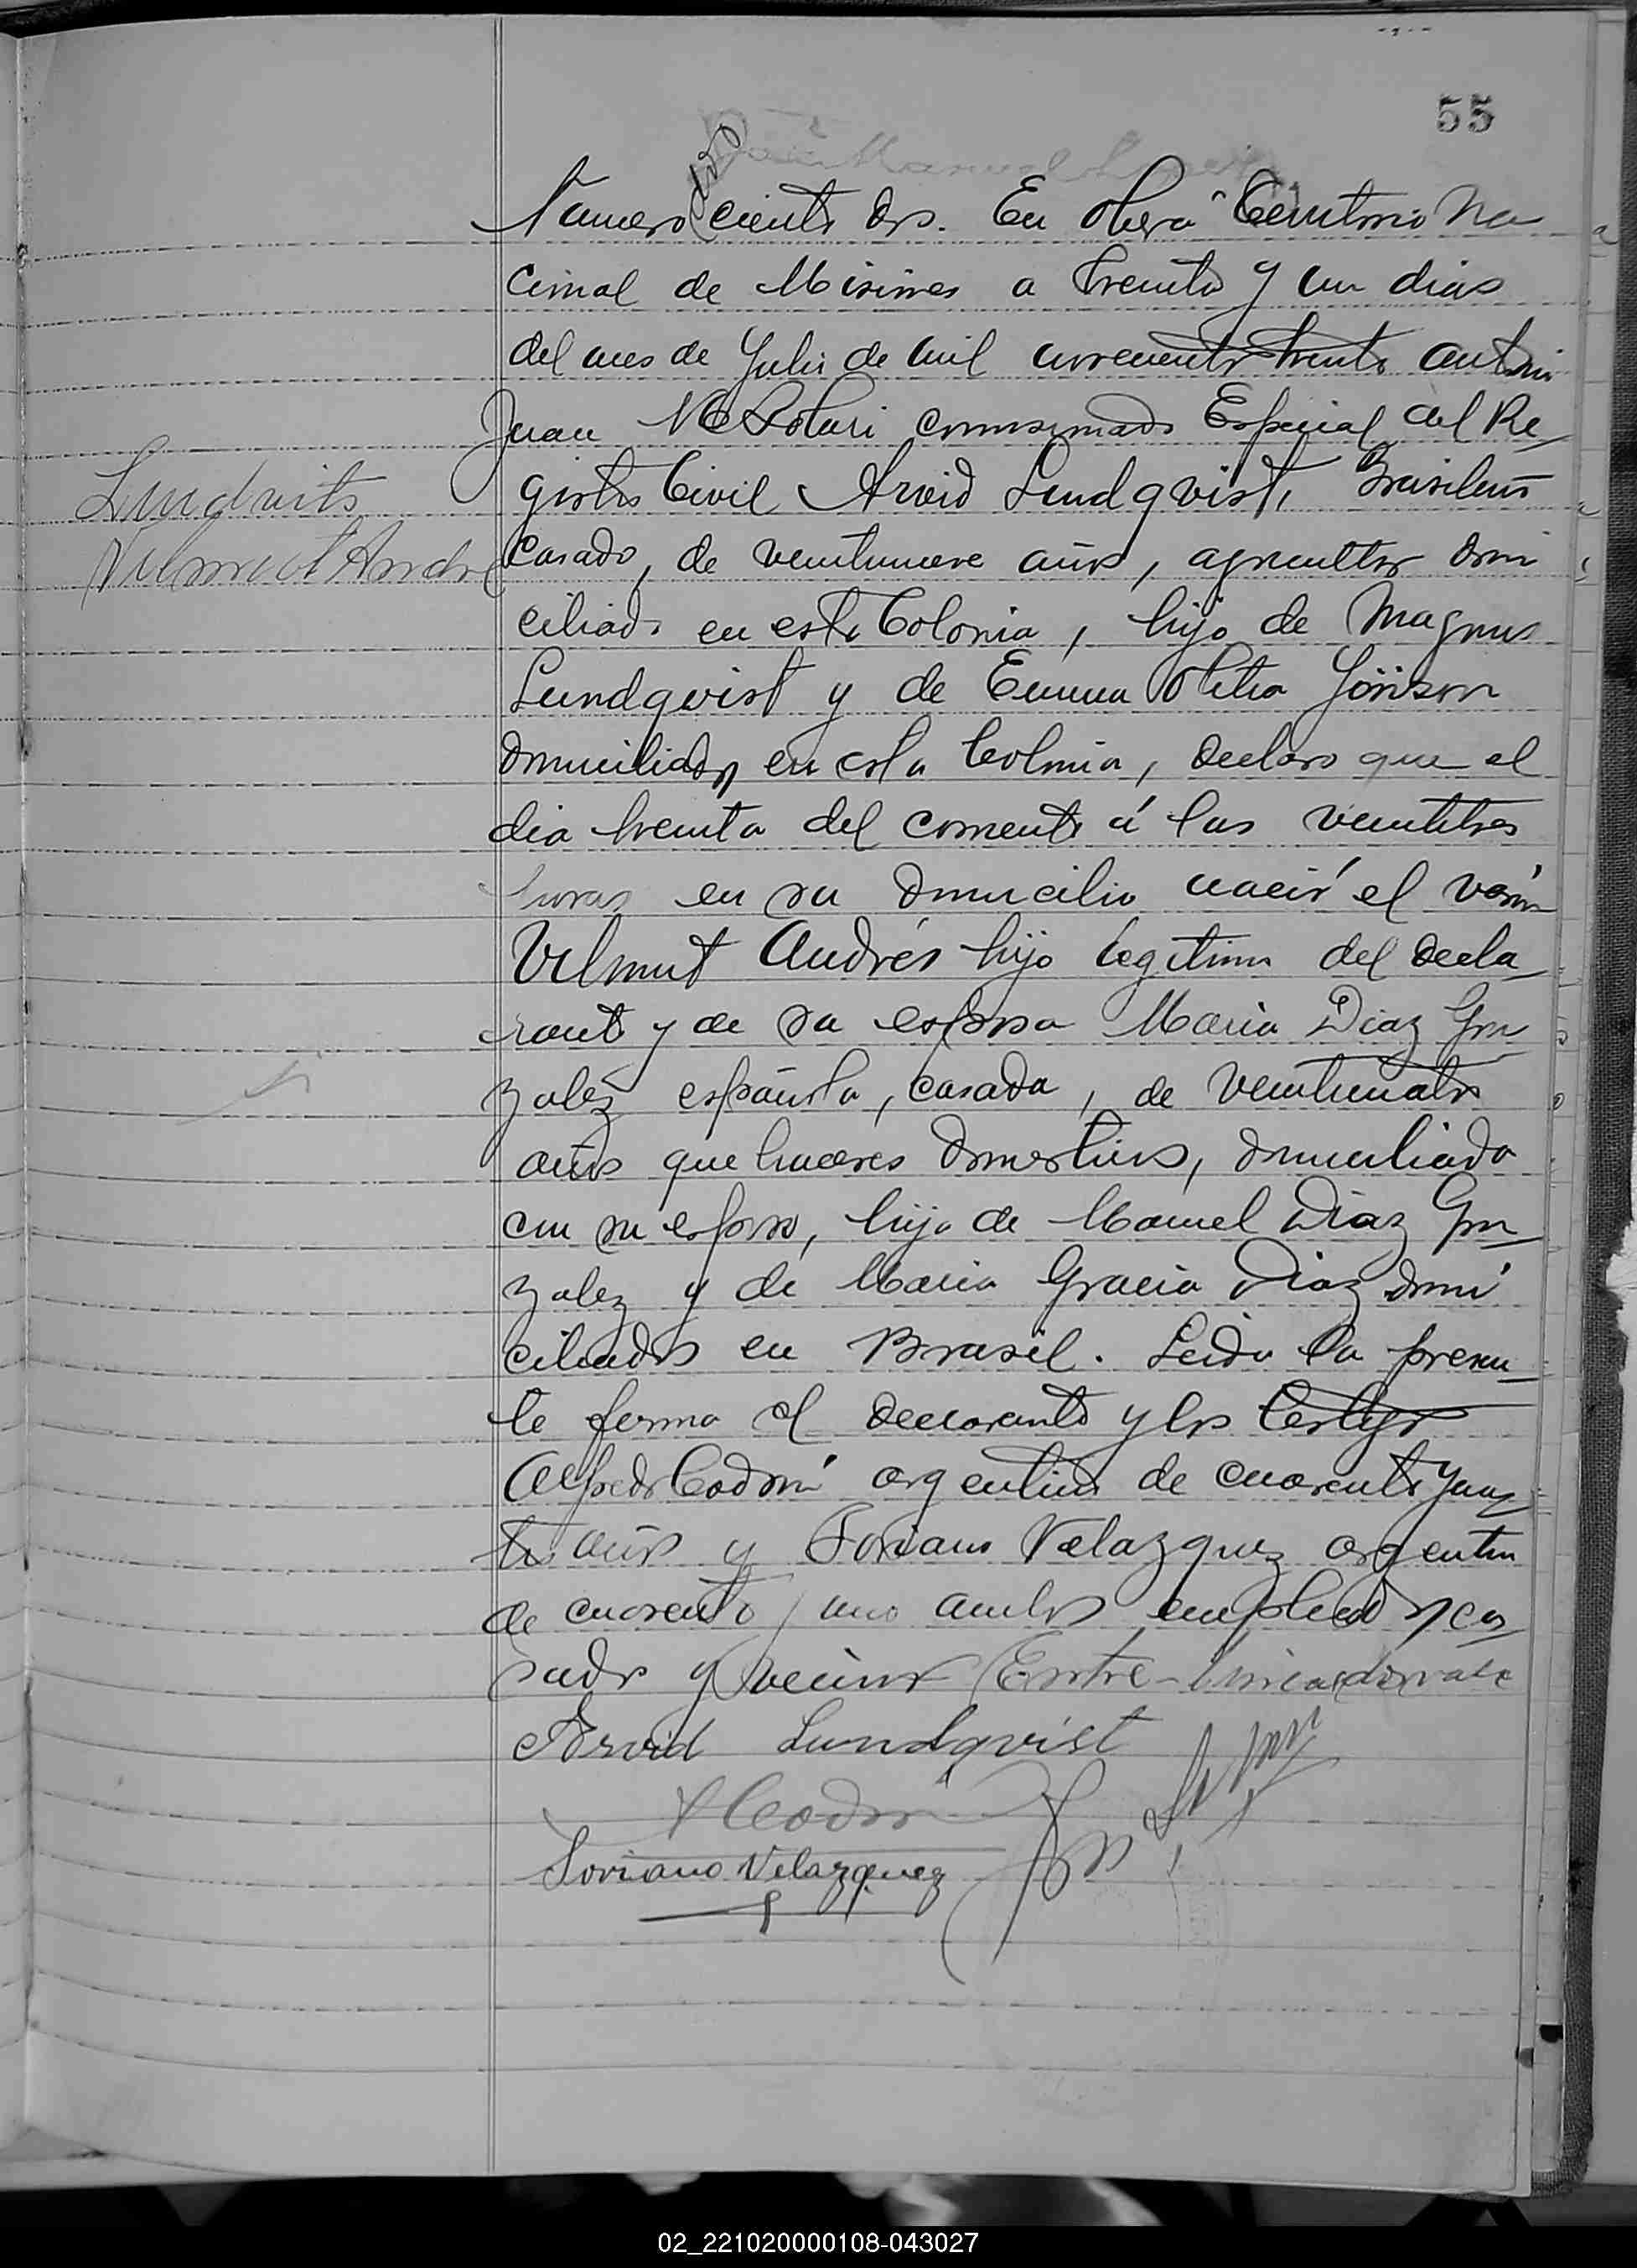 55
Numero ciento dos. En Oberá Territorio Na
cional de Misiones a treinta y un dias
del mes de Julio de mil novecientos treinta ante mi
Juan M Solari comisionado Especial del Re
gistro Civil Arvid Lundqvist, Brasileño
Lindvits
casado, de veintinueve años, agricultor domi
Vilmut Andre
ciliado en esta Colonia, hijo de Magnus
Lundqvist y de Emma Jönson
domiciliados en esta Colonia, declaro que el
dia treinta del corriente á las veintitres
horas en su domicilio nació el varón
Vilmut Andrés hijo legitimo del decla
rante y de su esposa Maria Diaz Gon
zalez española, casada, de veinticuatro
años que haceres domesticos, domiciliada
con su esposo, hija de Manuel Diaz Gon
zalez y de Maria Gracia Diaz domi
ciliados en Brasil. Leida la presen
te firma el declarante y los testigos
Alfredo Codoni argentino de cuarenta y
años y Soriano Velazquez argentino
de cuarenta y uno ambos empleados ca
sado y vecinos Entre-lineado dos vale
Arvid Lundqvist
A Codoni
Soriano Velazquez
02_221020000108-043027